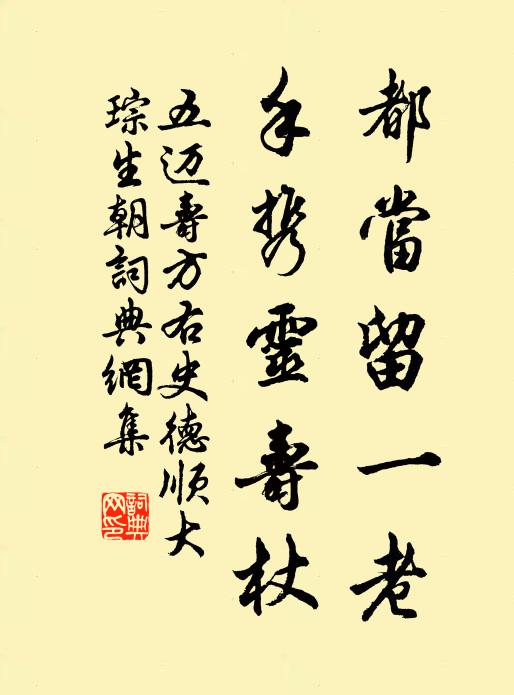 都當留一老
手携靈壽杖
五迈壽方右史德順大
琮生朝詞典網集
詞典網印